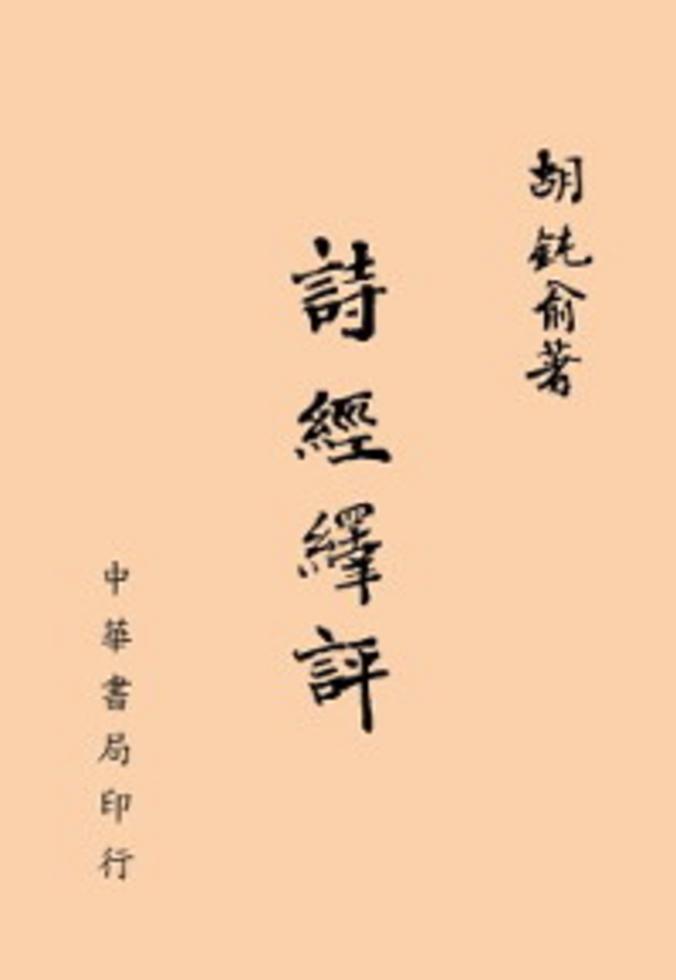 胡鈍俞著
詩經繹評
中華書局印行